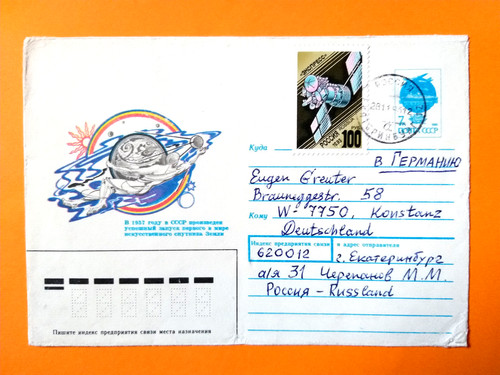 В 1957 году в СССР произведен
успешный запуск первого в мире
искусственного спутника Земли
100
РОССИЯ
7
ПОЧТА СССР
Куда
в Германию
Eugen Greuter
Brauneggestr. 58
Кому
W-7750, Konstanz
Deutschland
Индекс предприятия связи и адрес отправителя
620012 г. Екатеринбург
а/я 31 Черепанов М.М.
Россия - Russland
Пишите индекс предприятия связи места назначения